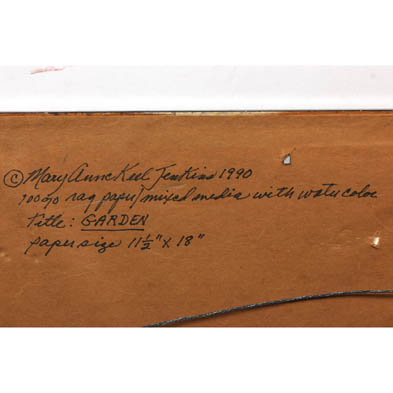 © Mary Anne Keel Jenkins 1990
100% rag paper/mixed media with watercolor
Title: GARDEN
paper size 11½" x 18"